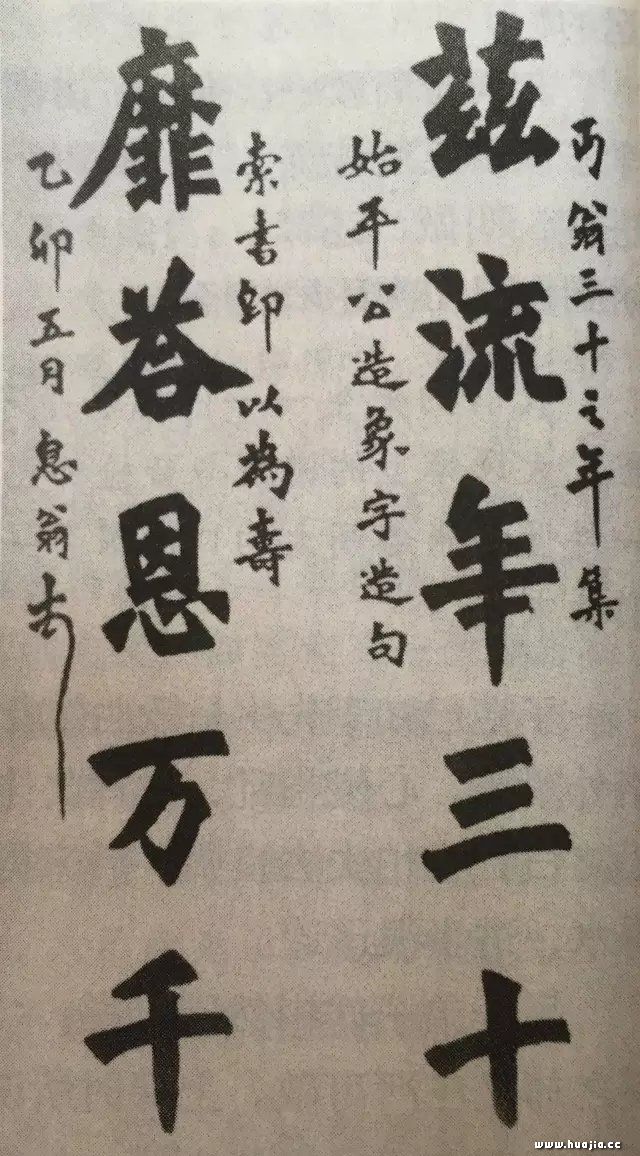 丏翁三十之年集
茲流年三十
始平公造象字造句
索書即以為壽
靡荅恩万千
乙卯五月息翁
www.huajia.cc